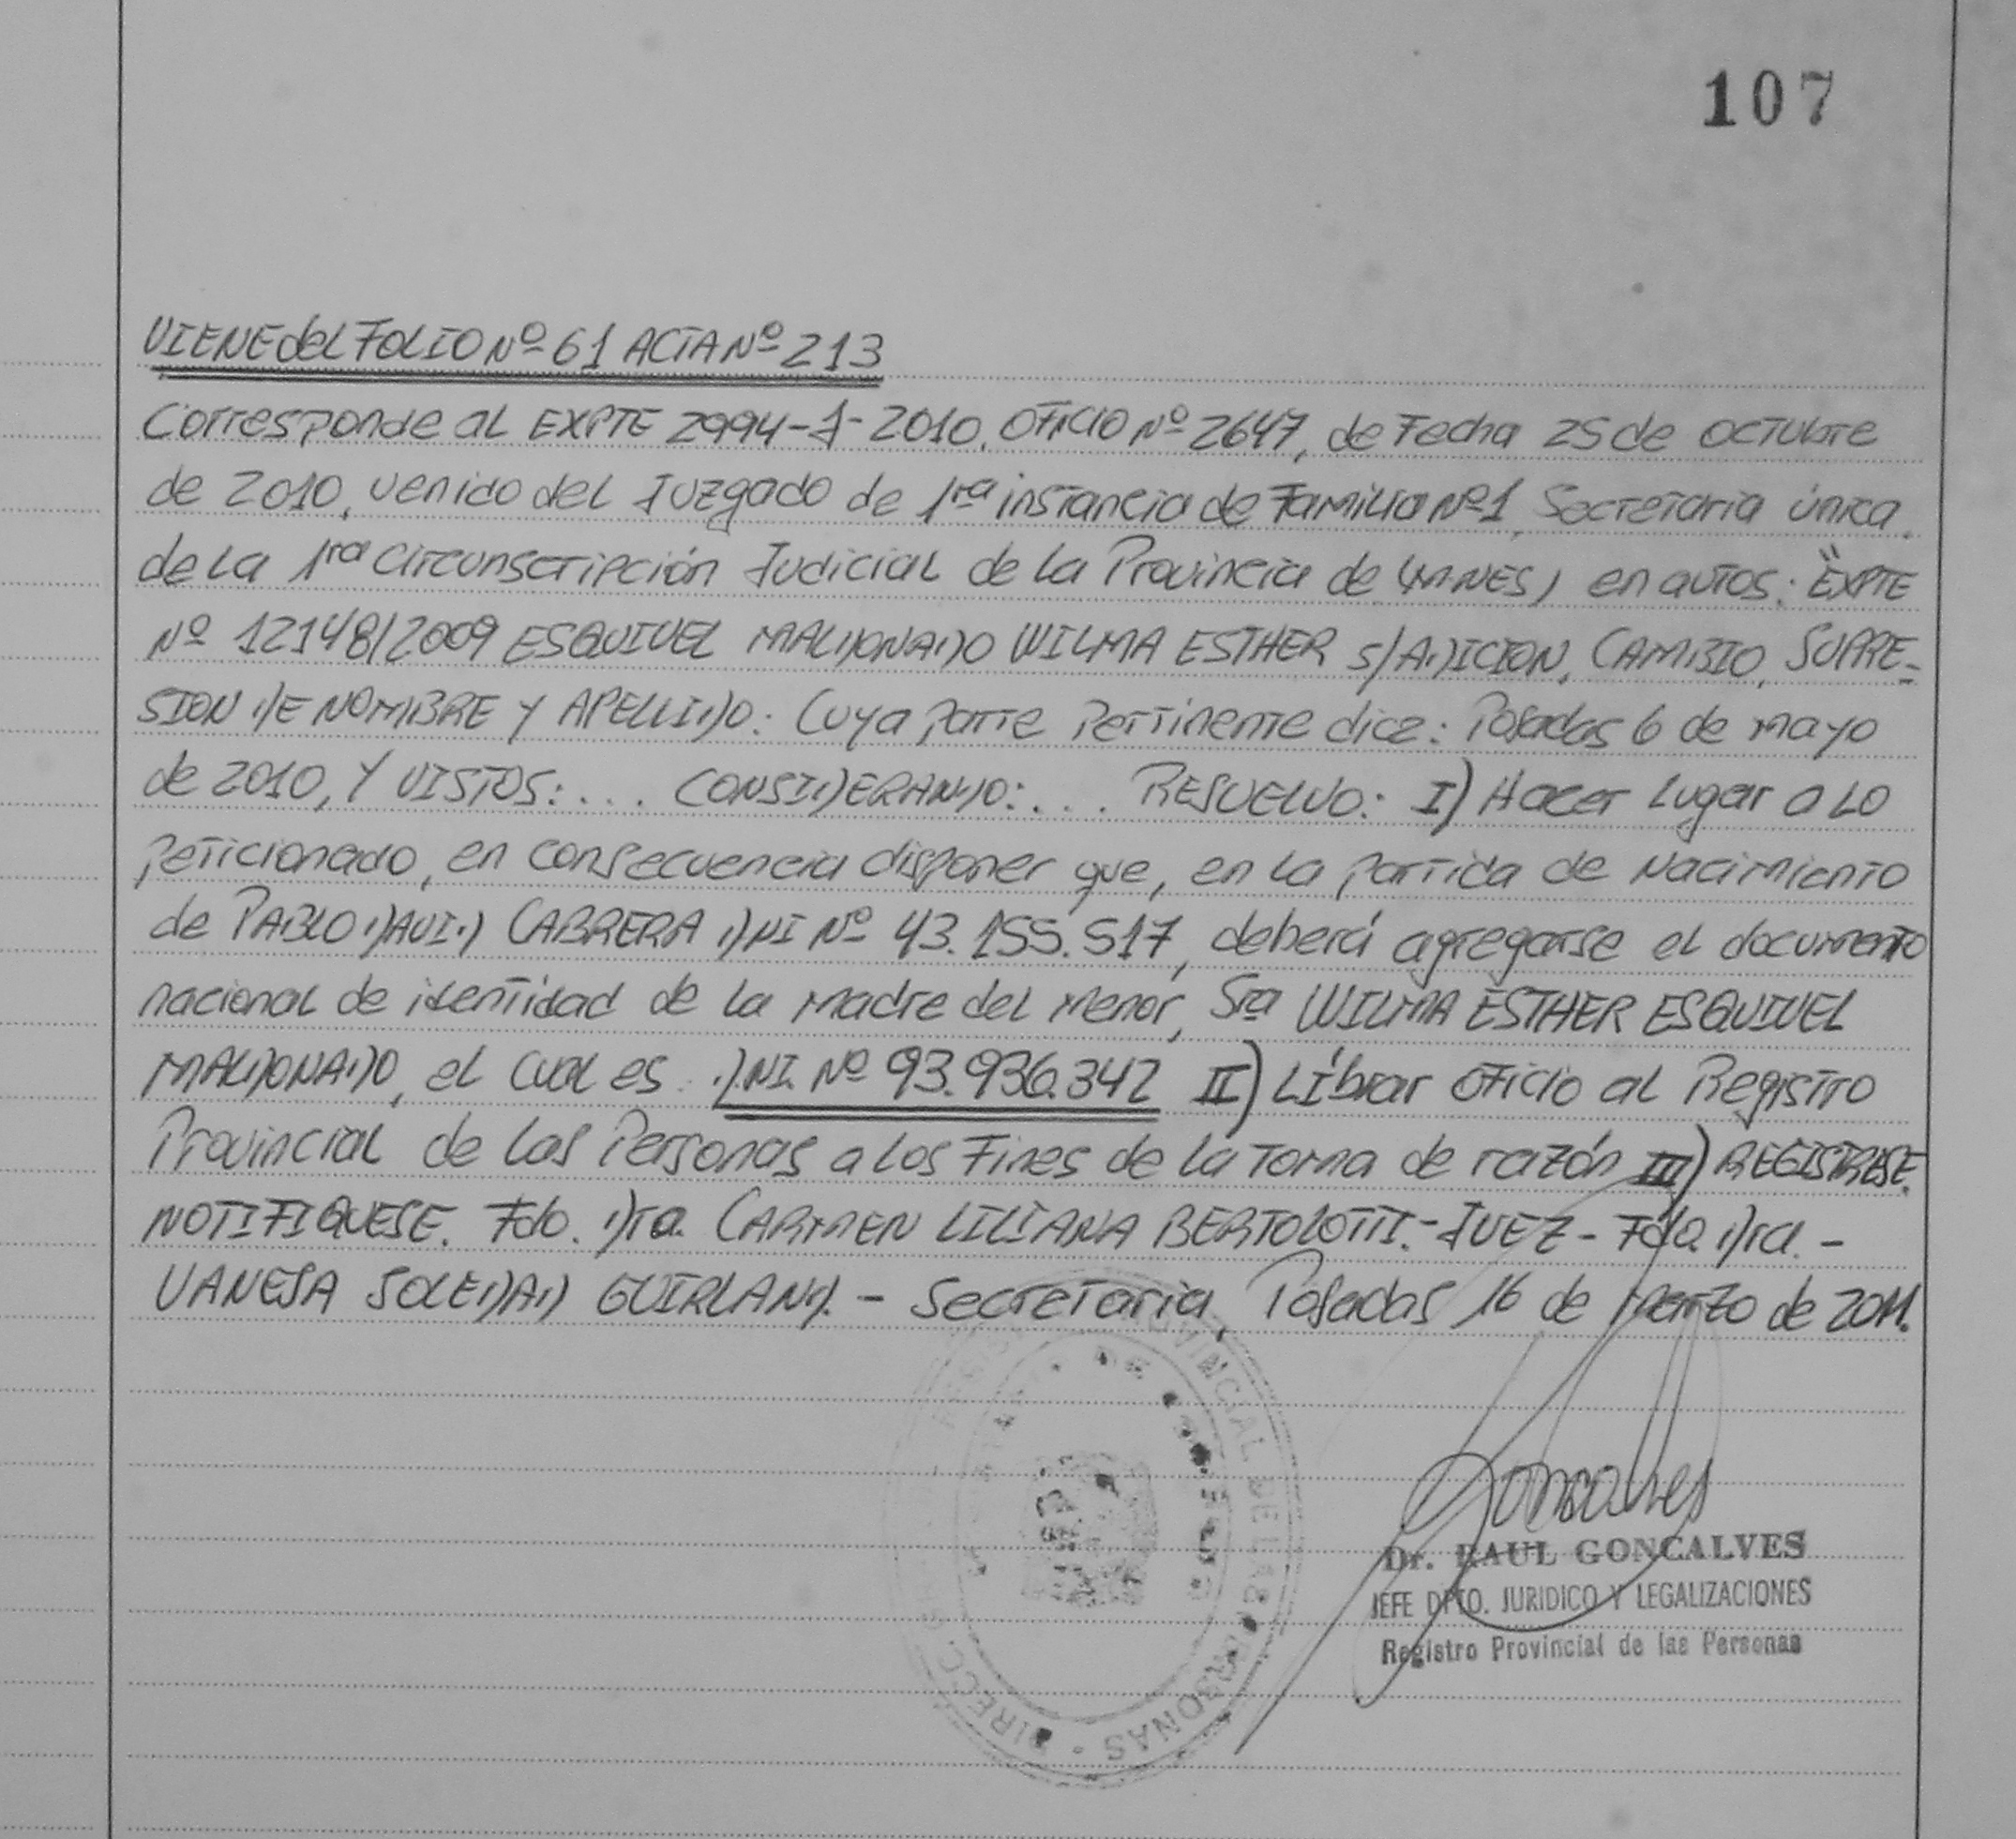 107
VIENE del FOLIO Nº 61 ACTA Nº 213
Corresponde al EXPTE 2994-J-2010, OFICIO Nº 2647, de Fecha 25 de octubre
de 2010, venido del Juzgado de 1ra instancia de Familia Nº1, Secretaria única
de la 1ra circunscripción Judicial de la Provincia de (MNES) en autos: "EXPTE
Nº 12148/2009 ESQUIVEL MALDONADO WILMA ESTHER S/ADICION, CAMBIO, SUPRE-
SION DE NOMBRE Y APELLIDO: Cuya parte Pertinente dice: Posadas 6 de mayo
de 2010, Y VISTOS:... CONSIDERANDO:... RESUELVO: I) Hacer lugar a lo
peticionado, en consecuencia disponer que, en la partida de nacimiento
de PABLO DAVID CABRERA DNI Nº 43.155.517, deberá agregarse el documento
nacional de identidad de la madre del menor, Sra WILMA ESTHER ESQUIVEL
MALDONADO, el cual es D.NI. Nº 93.936.342 II) Líbrar oficio al Registro
Provincial de las Personas a los Fines de la toma de razón III) REGISTRESE.
NOTIFIQUESE. Fdo. Dra. CARMEN LILIANA BERTOLOTTI.-JUEZ- Fdo. Dra.-
VANESA SOLEDAD GUIRLAND.- Secretaria, Posadas 16 de marzo de 2011.
Goncalves
Dr. RAUL GONCALVES
JEFE DPTO. JURIDICO Y LEGALIZACIONES
Registro Provincial de las Personas
PROVINCIAL DE LAS PERSONAS